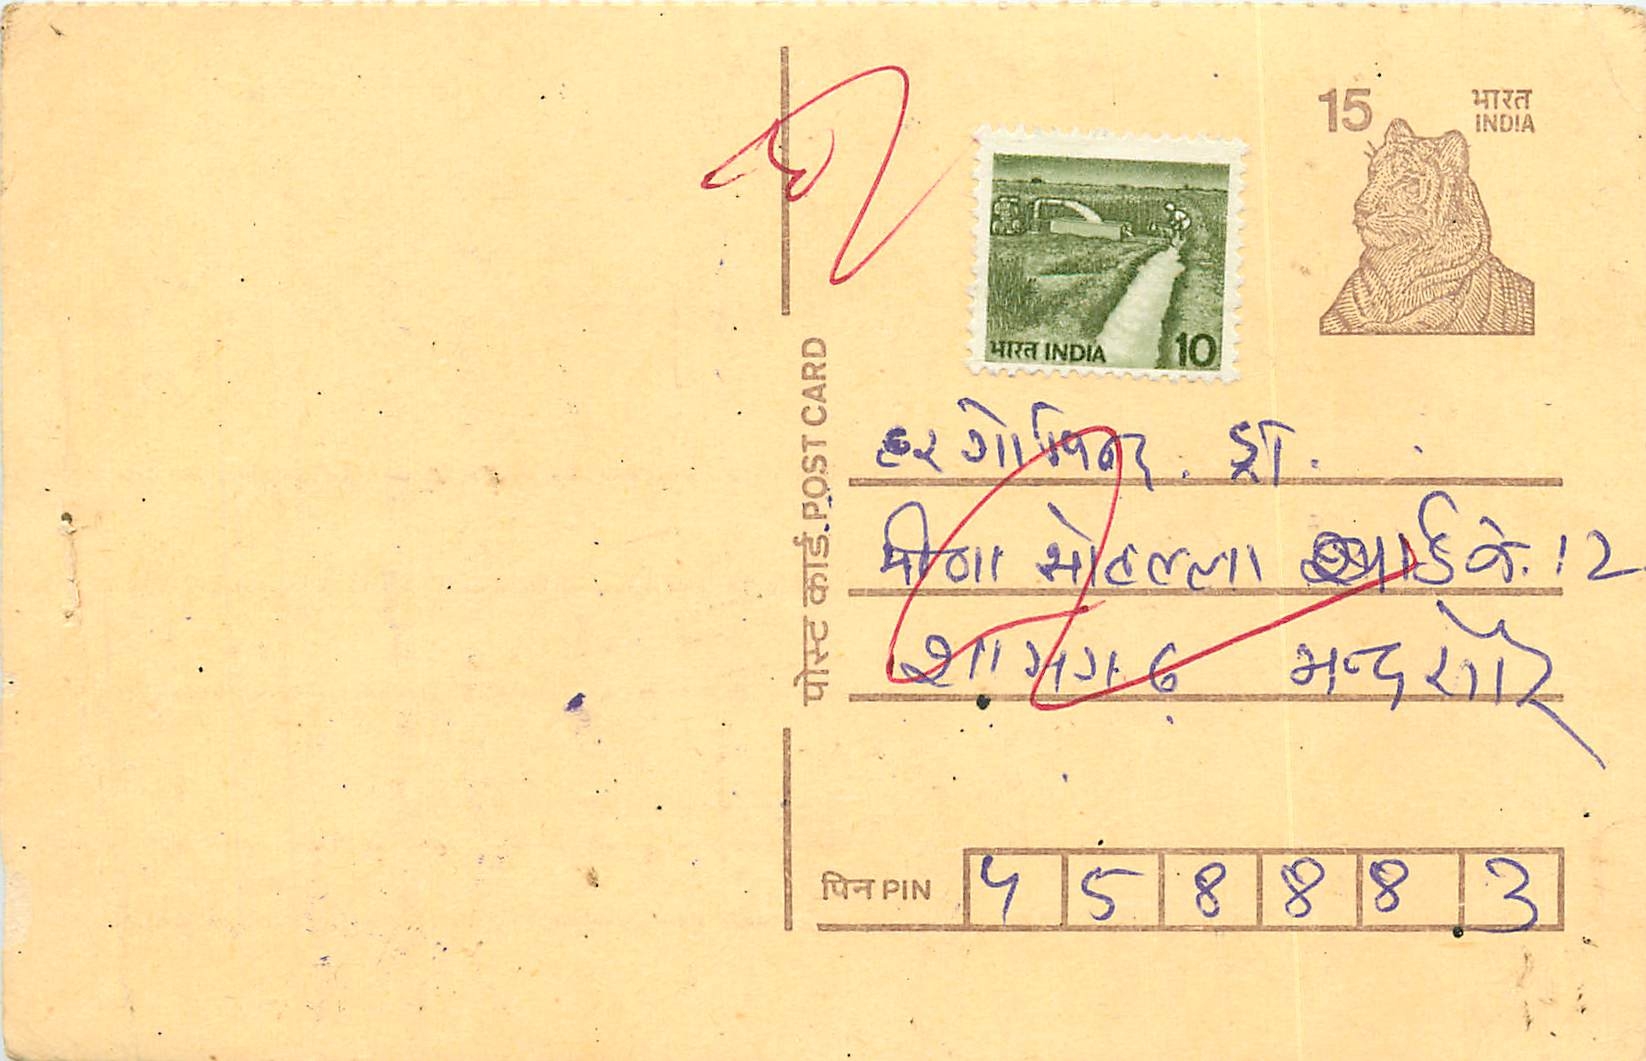 15 भारत
INDIA
भारत INDIA 10
पोस्ट कार्ड POST CARD
हर गोविन्द
मोहल्ला 12
शामगढ़ मन्दसौर
पिन PIN 4 5 8 8 8 3